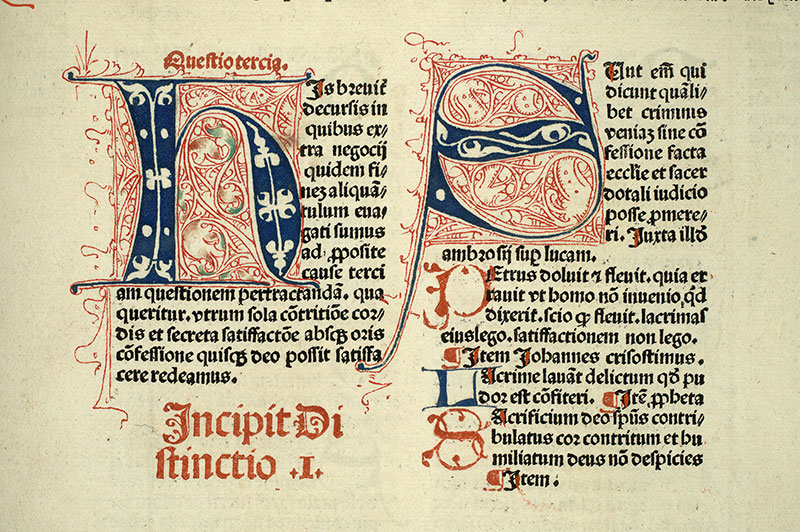 Questio tercia.
His breuit̃
decursis in
quibus ex⸗
tra negocij
quidem fi⸗
nez aliquã⸗
tulum eua⸗
gati sumus
ad ꝓposite
cause terci
am questionem pertractandã. qua
queritur. vtrum sola cõtritiõe cor⸗
dis et secreta satisfactõe absqꝫ oris
cõfessione quisqꝫ deo possit satisfa
cere redeamus.
Incipit Di
stinctio .I.
Sunt em̃ qui
dicunt quãli⸗
bet criminis
veniaz sine cõ
fessione facta
ecclie et sacer
dotali iudicio
posse ꝓmere⸗
ri. Juxta illđ
ambrosij suꝑ lucam.
PEtrus doluit ⁊ fleuit. quia er
rauit vt homo non inuenio. qđ
dixerit. scio ꝙ fleuit. lacrimas
eius lego. satisfactionem non lego.
¶Item Johannes crisostimus.
LAcrime lauãt delictum qđ pu
doꝛ est cõfiteri. ¶Itẽ ꝓpheta
SAcrificium deo spũs contri⸗
bulatus coꝛ contritum et hu
miliatum deus nõ despicies
¶Item.